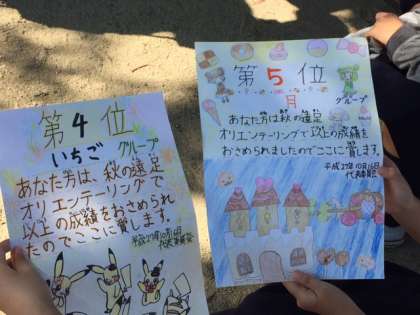 第4位
いちごグループ
あなた方は、秋の遠足
オリエンテーリングで
以上の成績をおさめられ
たのでここに賞します。
平成27年10月16日
代表委員会
第5位
月グループ
あなた方は秋の遠足
オリエンテーリングで以上の成績を
おさめられましたのでここに賞します。
平成27年10月16日
代表委員会